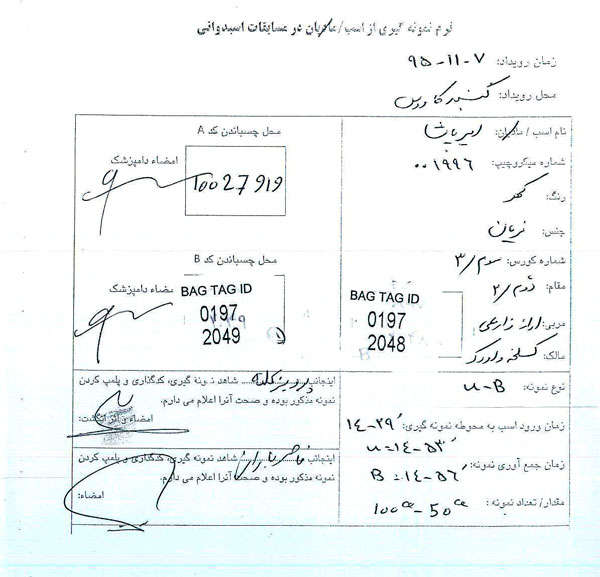 فرم نمونه گیری از اسب/مادیان در مسابقات اسبدوانی
زمان رویداد: ۷-۱۱-۹۵
محل رویداد: گنبد کاووس
نام اسب / مادیان: امیرپاشا
شماره میکروچیپ: ۰۰۱۹۹۶
رنگ: کهر
جنس: نریان
شماره کورس: سوم/۳
مقام: دوم/۲
مربی: زارعی
مالک:
نوع نمونه: u-B
زمان ورود اسب به محوطه نمونه گیری: ۱۴-۲۹
u=۱۴-۵۳
زمان جمع آوری نمونه: B=۱۴-۵۶
مقدار/ تعداد نمونه: ۱۰۰cc-۵۰cc
محل چسباندن کد A
امضاء دامپزشک
10027919
محل چسباندن کد B
امضاء دامپزشک
BAG TAG ID
0197
2049
BAG TAG ID
0197
2048
اینجانب شاهد نمونه گیری، کدگذاری و پلمپ کردن
نمونه مذکور بوده و صحت آنرا اعلام می دارم.
امضاء و اثر انگشت:
اینجانب شاهد نمونه گیری، کدگذاری و پلمپ کردن
نمونه مذکور بوده و صحت آنرا اعلام می دارم.
امضاء: